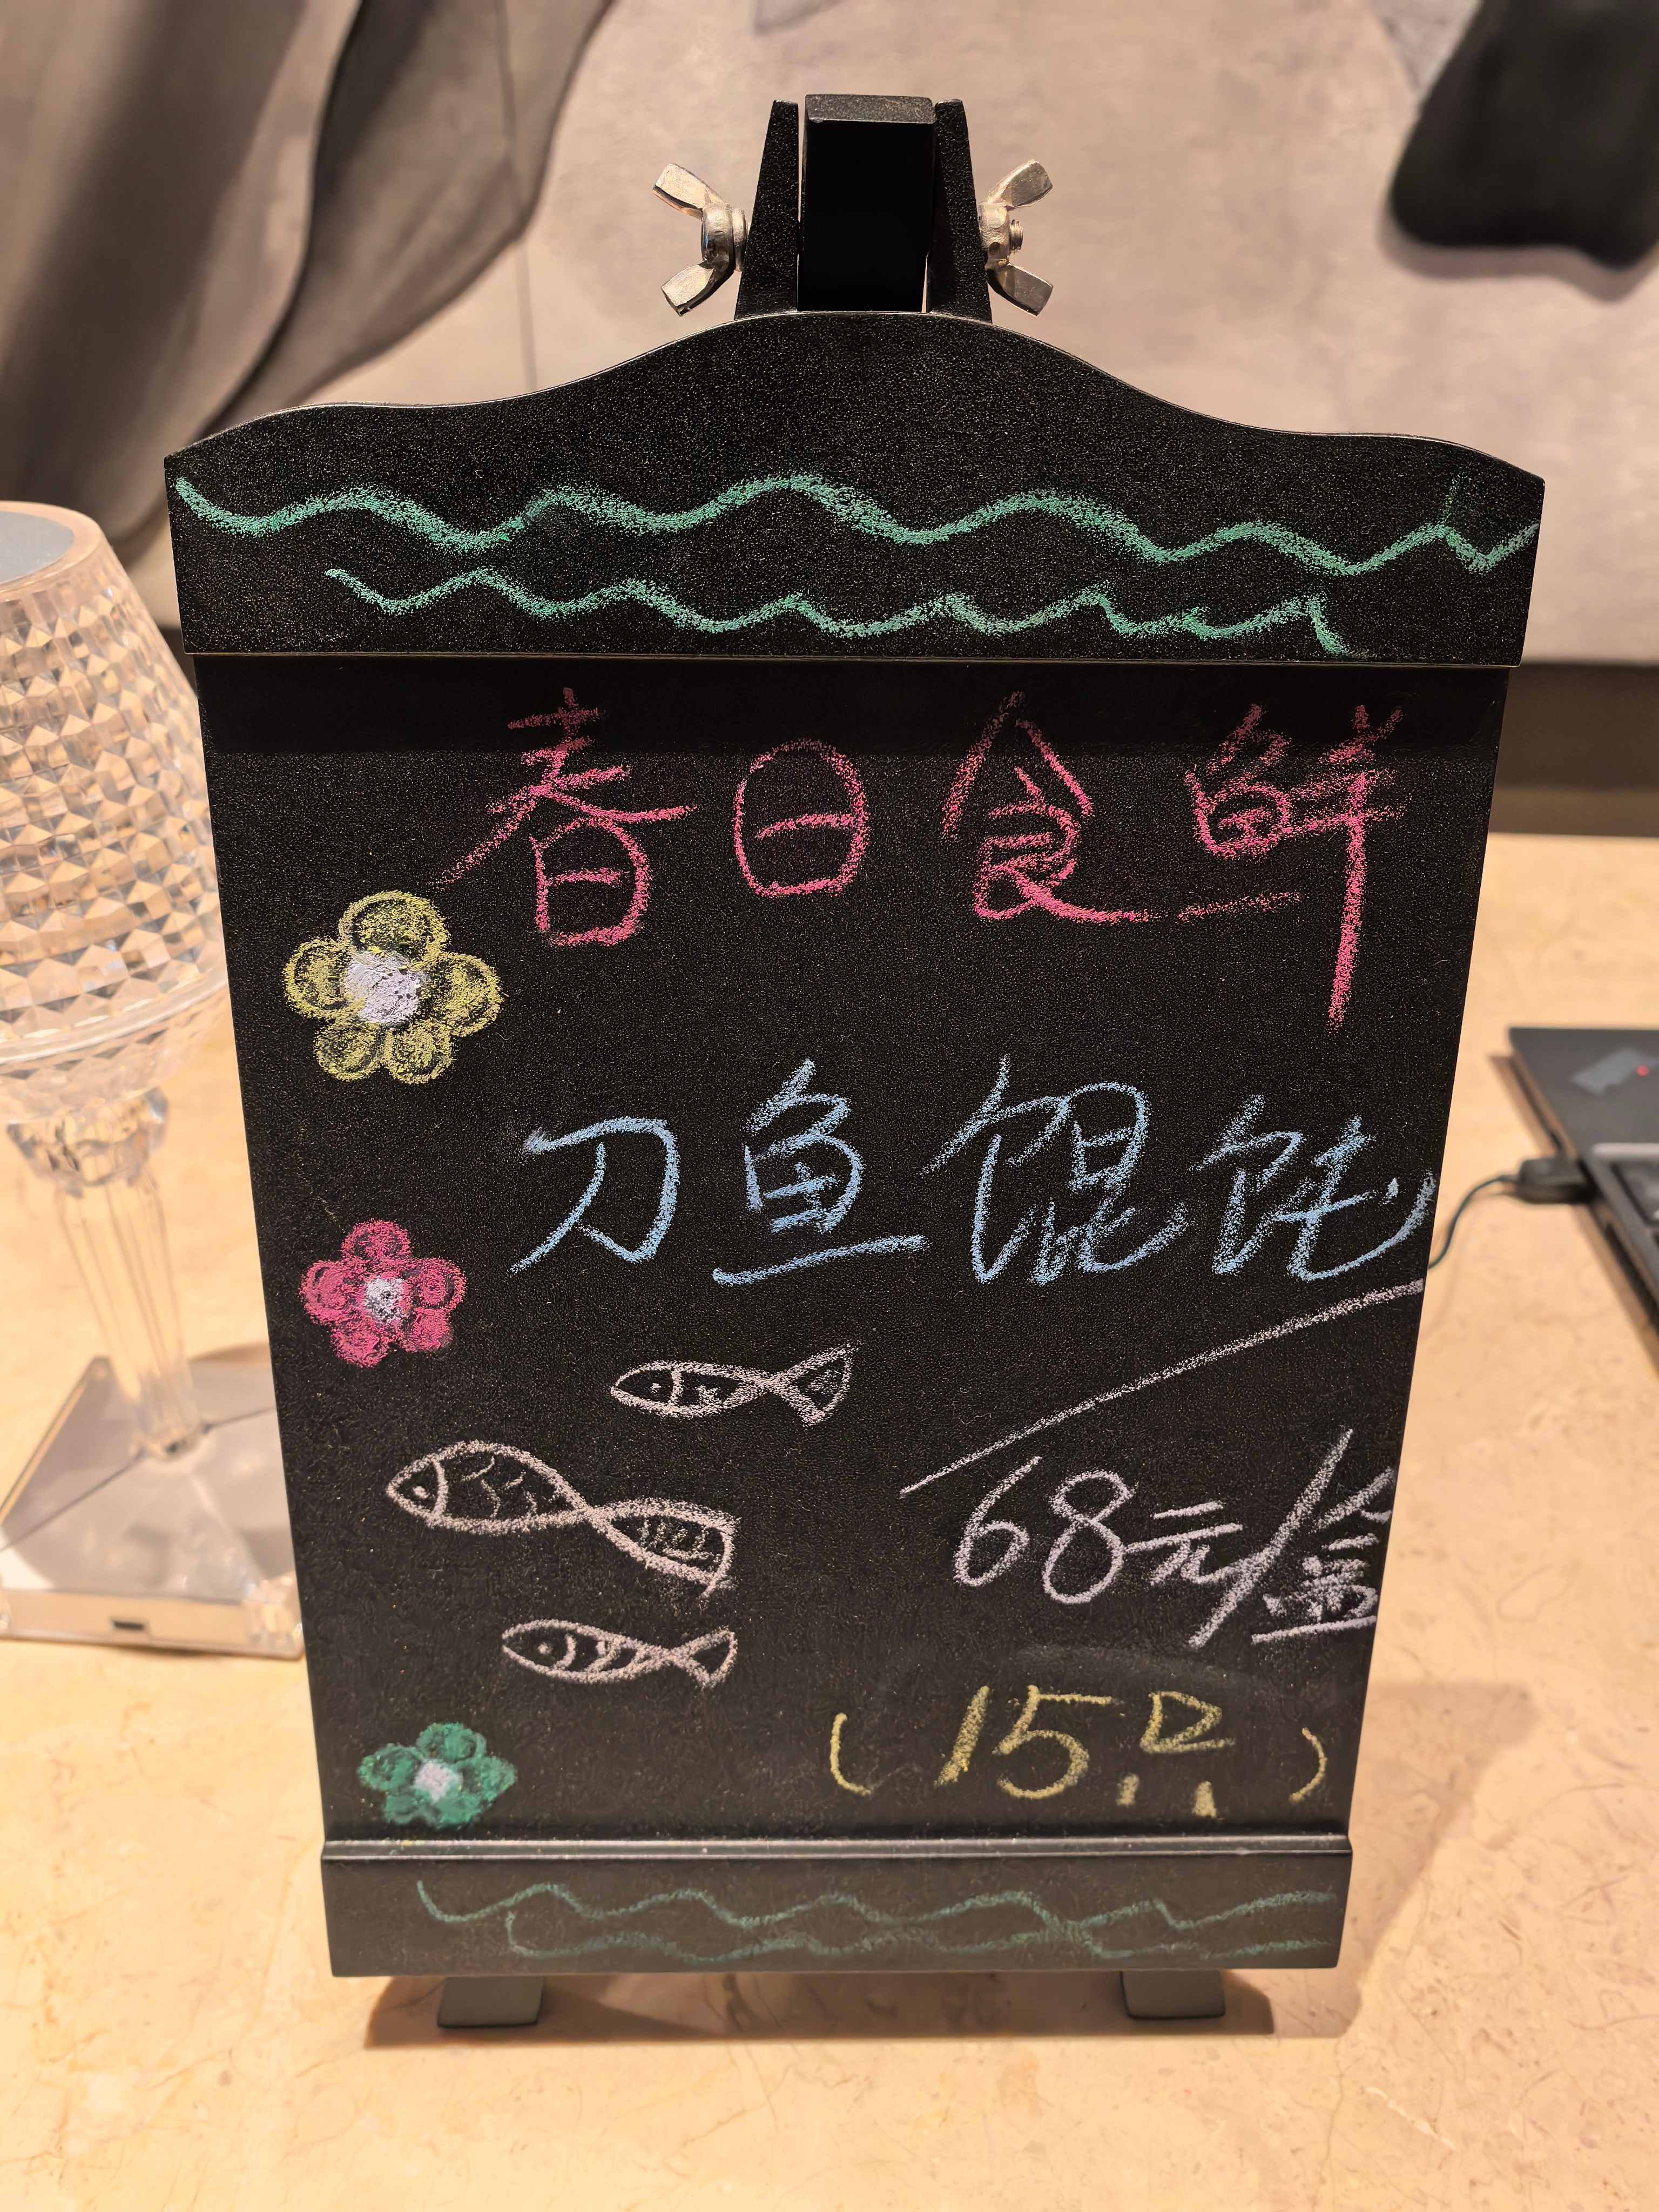 春日食鲜
刀鱼馄饨
68元/盒
(15只)